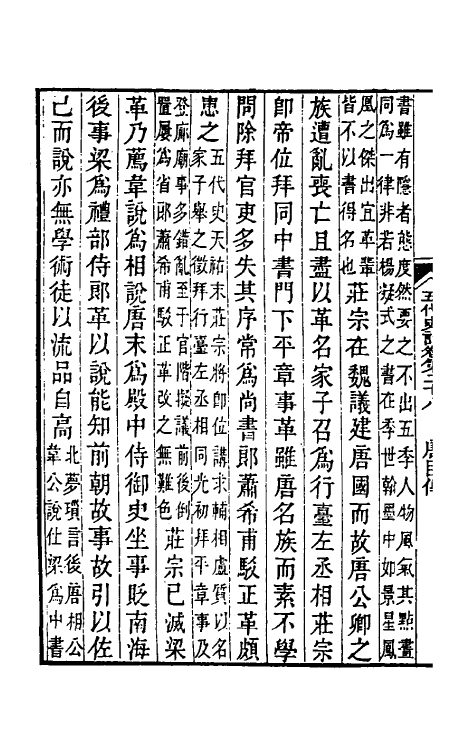 五代史記卷第二十八　唐臣傳
書雖有隱者態度然要之不出五季人物風氣其點畫
同爲一律非若楊凝式之書在季世翰墨中如景星鳳
凰之傑出宜革輩
皆不以書得名也
莊宗在魏議建唐國而故唐公卿之
族遭亂喪亡且盡以革名家子召爲行臺左丞相莊宗
卽帝位拜同中書門下平章事革雖唐名族而素不學
問除拜官吏多失其序常爲尚書郎蕭希甫駁正革頗
患之
五代史天祐末莊宗將卽位講求輔相盧質以名
家子舉之徵拜行臺左丞相同光初拜平章事及
登廊廟事多錯亂至于官階擬議前後倒
置屢爲省郎蕭希甫駁正革改之無難色
莊宗已滅梁
革乃薦韋說爲相說唐末爲殿中侍御史坐事貶南海
後事梁爲禮部侍郎革以說能知前朝故事故引以佐
己而說亦無學術徒以流品自高
北夢瑣言後唐相公
韋公說仕梁爲中書